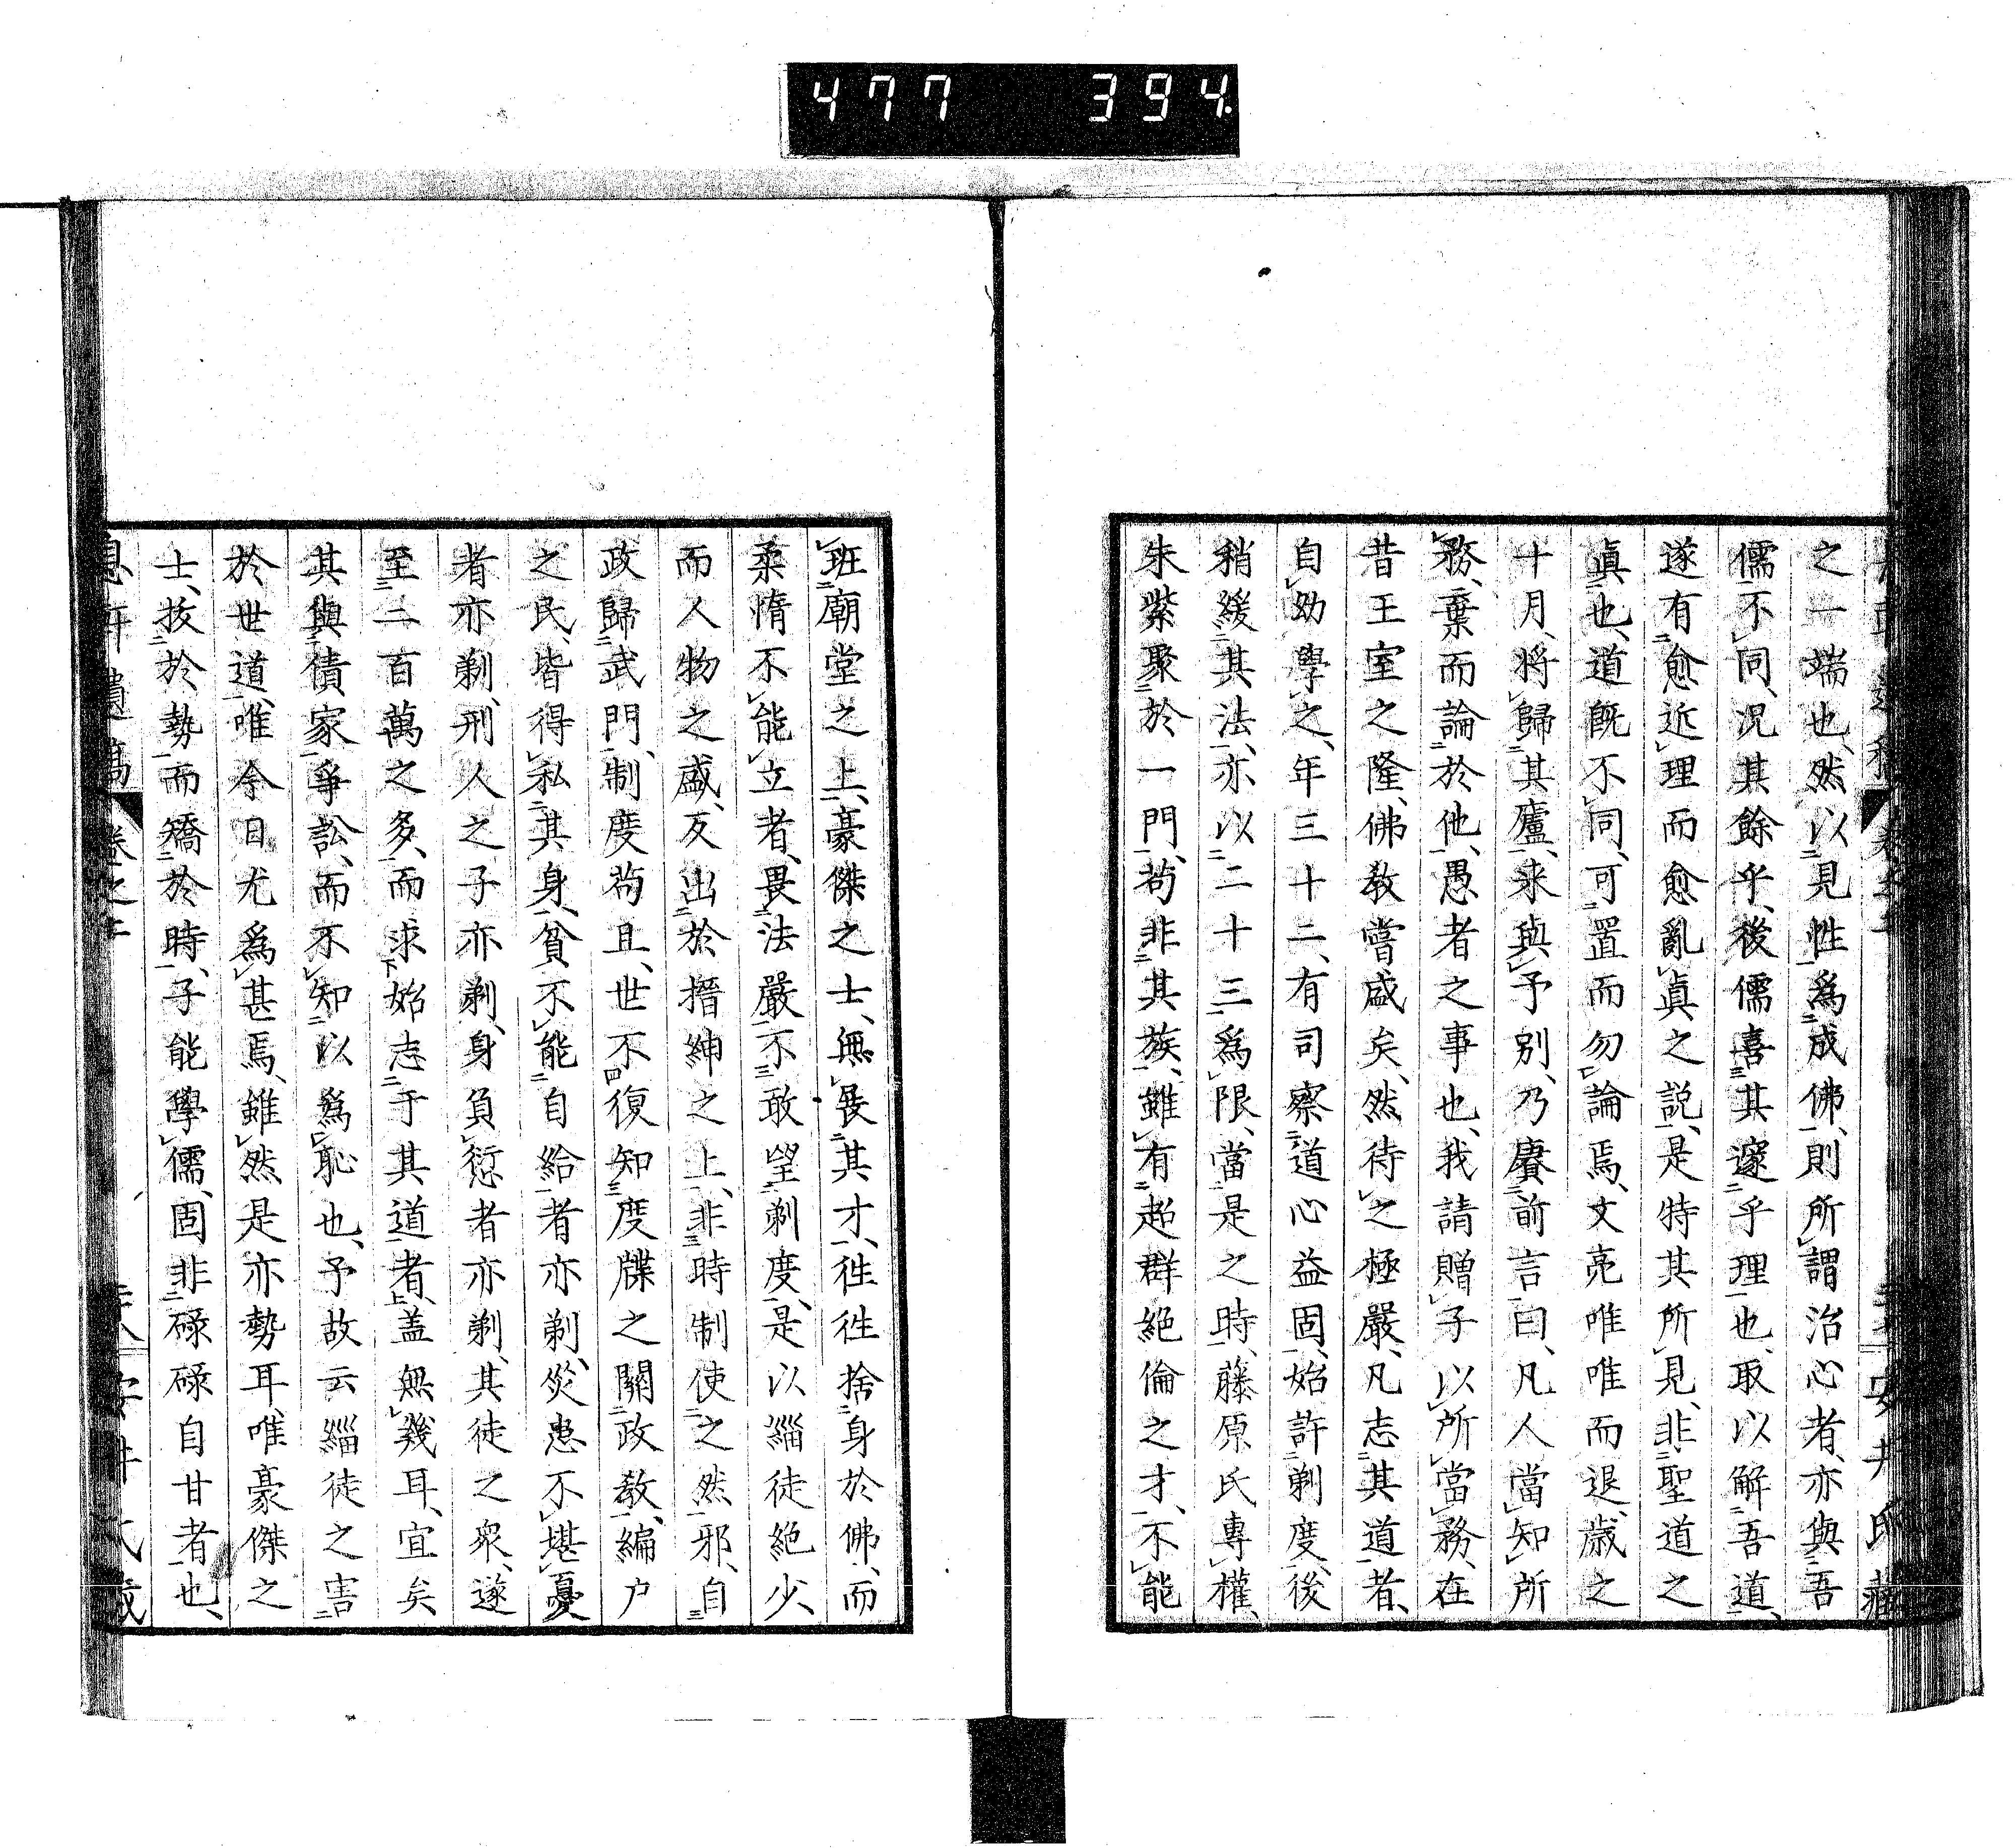 477 394
之一端也、然以見性爲成佛、則所謂治心者、亦與吾
儒不同、況其餘乎、後儒喜其邃乎理也、取以解吾道、
遂有愈近理而愈亂眞之説、是特其所見、非聖道之
眞也、道既不同、可置而勿論焉、文亮唯唯而退、歲之
十月、將歸其廬、來與予別、乃賡前言曰、凡人當知所
務、棄而論於他、愚者之事也、我請贈子以所當務、在
昔王室之隆、佛教嘗盛矣、然待之極嚴、凡志其道者、
自幼學之、年三十二、有司察道心益固、始許剃度、後
稍緩其法、亦以二十三爲限、當是之時、藤原氏專權、
朱紫聚於一門、苟非其族、雖有超群絶倫之才、不能
班廟堂之上、豪傑之士、無展其才、往往捨身於佛、而
柔惰不能立者、畏法嚴不敢望剃度、是以緇徒絶少、
而人物之盛、反出於搢紳之上、非時制使之然邪、自
政歸武門、制度苟且、世不復知度牒之關政教、編户
之民、皆得私其身、貧不能自給者亦剃、災患不堪憂
者亦剃、刑人之子亦剃、身負愆者亦剃、其徒之衆、遂
至二百萬之多、而求始志于其道者、盖無幾耳、宜矣
其與債家爭訟、而不知以爲恥也、予故云緇徒之害
於世道、唯今日尤爲甚焉、雖然是亦勢耳、唯豪傑之
士、拔於勢而矯於時、子能學儒、固非碌碌自甘者也、
息軒遺稿 卷之 安井氏藏